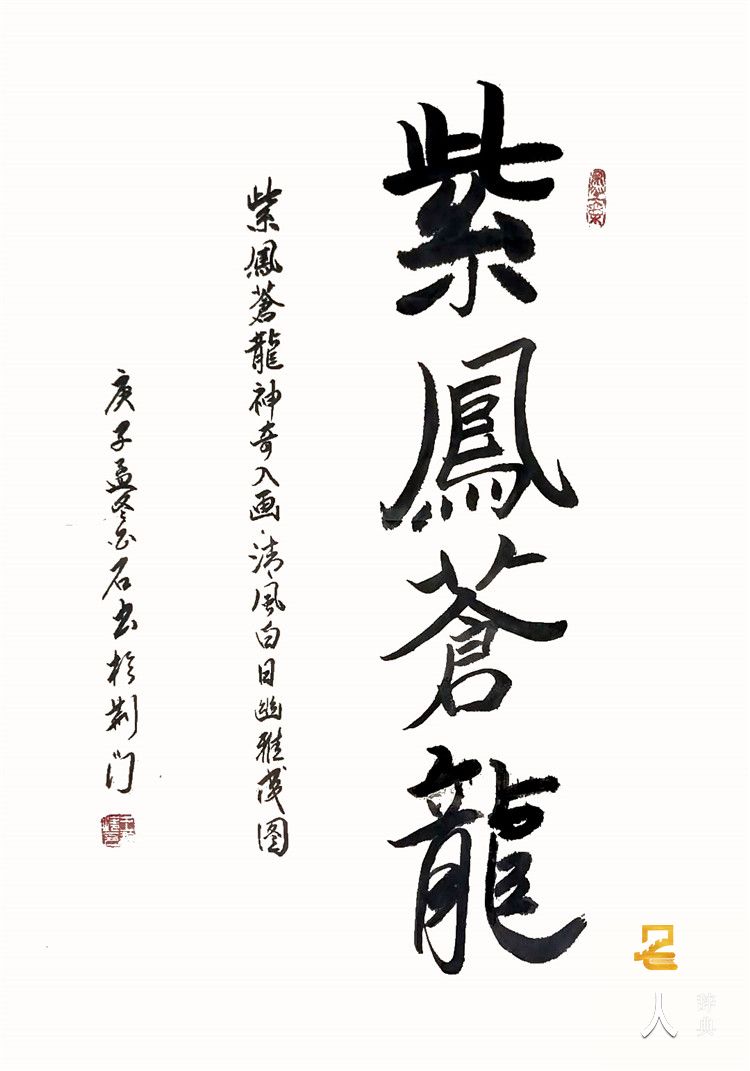 紫鳳蒼龍
紫鳳蒼龍神奇入画·清風白日幽雅成图
庚子孟冬 石书於荆门
人
辞典